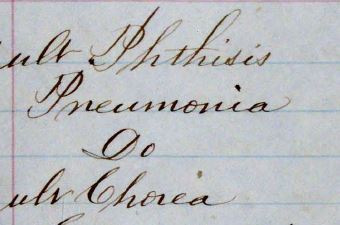 ult Phthisis
Pneumonia
Do
ult Chorea